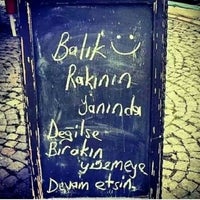 Balık
Rakının
yanında
Değilse
Bırakın
yüzmeye
Devam etsin.